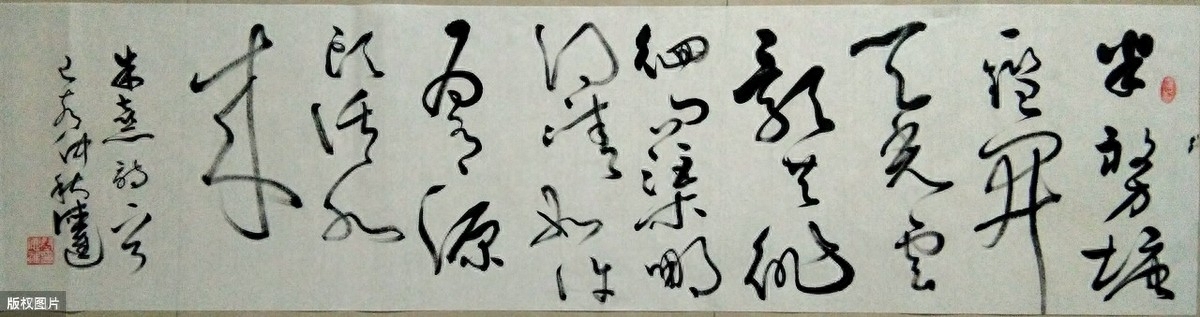 半畝方塘
一鑑開
天光雲
影共徘
徊问渠哪
得清如许
为有源
头活水
来
朱熹诗一首
己亥仲秋
版权图片